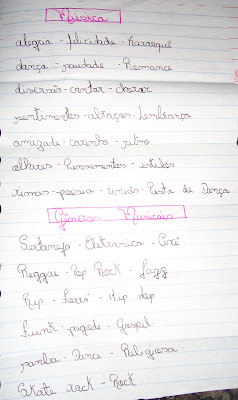 Música
alegria - felicidade - Karaoquê
dança - saudade - Romance
diversão - cantar - chorar
sentimentos - abraços - Lembrança
amizade - carinho - ritmo
olhares - Pensamentos - estilos
rimas - poesia - união - Pista de Dança.
Gêneros Musicais
Sertanejo - Eletrônica - Axé
Reggae - Pop Rock - Jazz
Rap - Forró - Hip Hop
Funk - pagode - Gospel
samba - Dance - Religiosa.
Skate rock - Rock